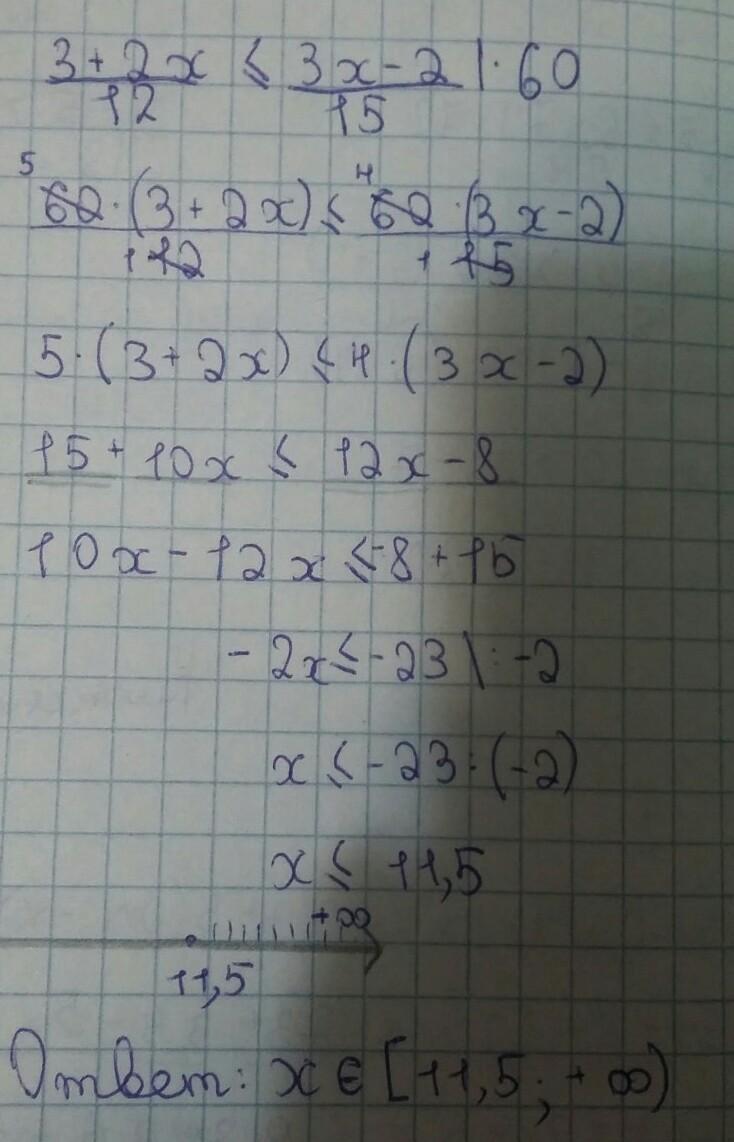 3+2x/12 ≤ 3x-2/15 |·60
5 60·(3+2x)/1 12 ≤ 4 60·(3x-2)/1 15
5·(3+2x) ≤ 4·(3x-2)
15+10x ≤ 12x-8
10x-12x ≤ -8+15
-2x ≤ -23 |:-2
x ≤ -23:(-2)
x ≤ 11,5
+∞
11,5
Ответ: x ∈ [11,5; +∞)